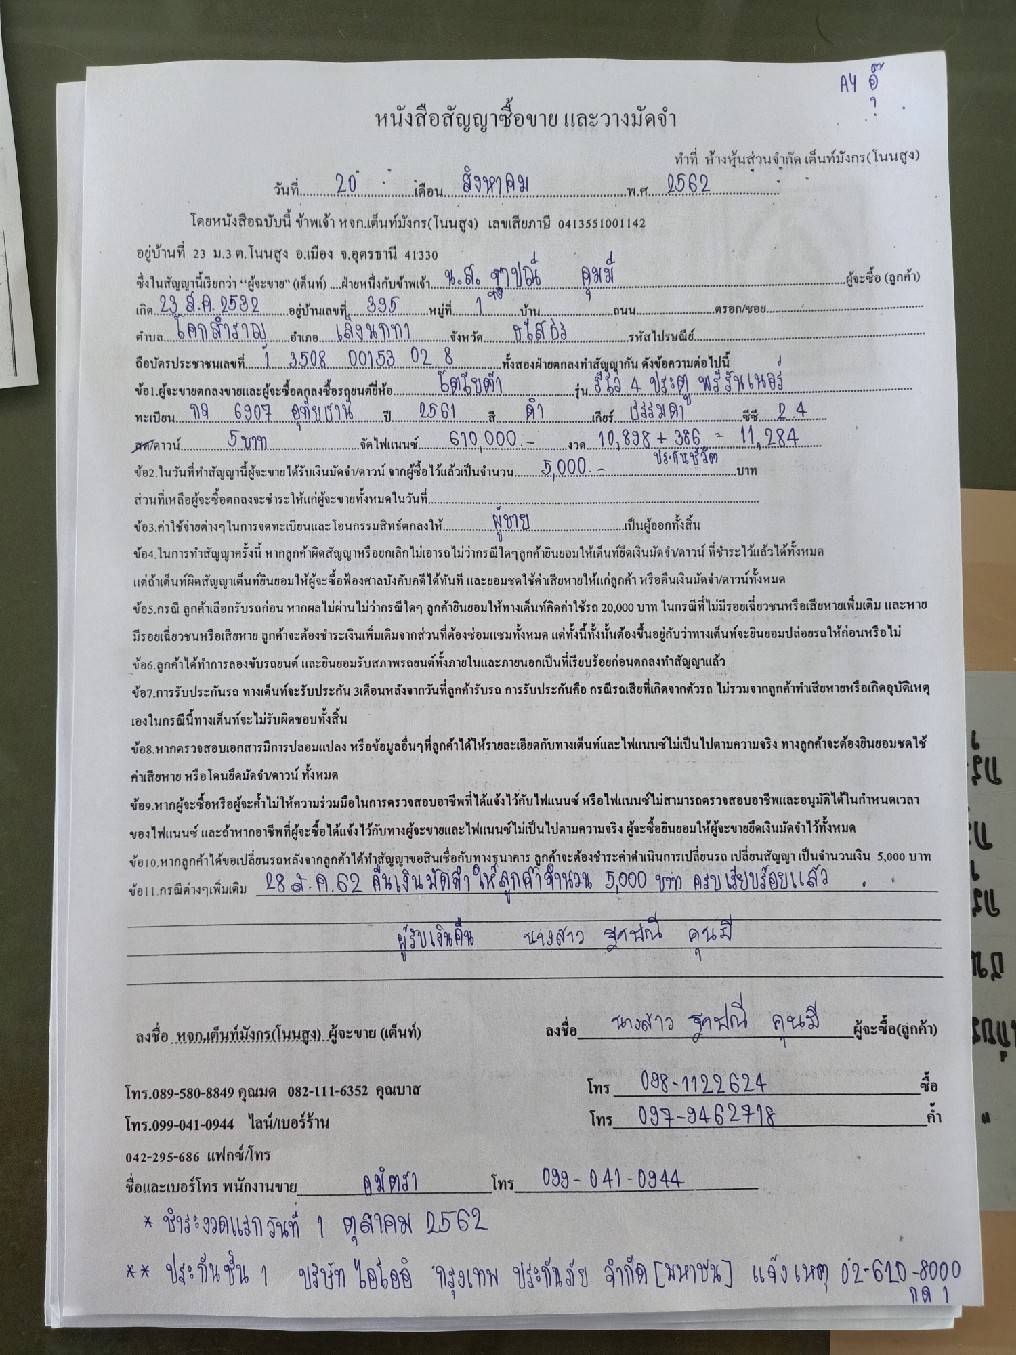 A4 อุ๊
หนังสือสัญญาซื้อขาย และวางมัดจำ
ทำที่ ห้างหุ้นส่วนจำกัด เต็นท์มังกร(โนนสูง)
วันที่ 20 เดือน สิงหาคม พ.ศ. 2562
โดยหนังสือฉบับนี้ ข้าพเจ้า หจก.เต็นท์มังกร(โนนสูง) เลขเสียภาษี 0413551001142
อยู่บ้านที่ 23 ม.3 ต.โนนสูง อ.เมือง จ.อุดรธานี 41330
ซึ่งในสัญญานี้เรียกว่า "ผู้จะขาย" (เต็นท์) ฝ่ายหนึ่งกับข้าพเจ้า น.ส. ฐาปณี คุนมี ผู้จะซื้อ (ลูกค้า)
เกิด 23 ส.ค. 2532 อยู่บ้านเลขที่ 395 หมู่ที่ 1 บ้าน ถนน ตรอก/ซอย
ตำบล โคกสำราญ อำเภอ เลิงนกทา จังหวัด ยโสธร รหัสไปรษณีย์
ถือบัตรประชาชนเลขที่ 1 3508 00153 02 8 ทั้งสองฝ่ายตกลงทำสัญญากัน ดังข้อความต่อไปนี้
ข้อ1.ผู้จะขายตกลงขายและผู้จะซื้อตกลงซื้อรถยนต์ยี่ห้อ โตโยต้า รุ่น รีโว่ 4 ประตู พรีรันเนอร์
ทะเบียน กจ 6907 อุทัยธานี ปี 2561 สี ดำ เกียร์ ธรรมดา ซีซี 2.4
สด/ดาวน์ 5 บาท จัดไฟแนนซ์ 610,000.- งวด 10,898 + 386 = 11,284
ประกันชีวิต
ข้อ2.ในวันที่ทำสัญญานี้ผู้จะขายได้รับเงินมัดจำ/ดาวน์ จากผู้ซื้อไว้แล้วเป็นจำนวน 5,000.- บาท
ส่วนที่เหลือผู้จะซื้อตกลงจะชำระให้แก่ผู้จะขายทั้งหมดในวันที่
ข้อ3.ค่าใช้จ่ายต่างๆในการจดทะเบียนและโอนกรรมสิทธ์ตกลงให้ ผู้ขาย เป็นผู้ออกทั้งสิ้น
ข้อ4.ในการทำสัญญาครั้งนี้ หากลูกค้าผิดสัญญาหรือยกเลิกไม่เอารถไม่ว่ากรณีใดๆลูกค้ายินยอมให้เต็นท์ยึดเงินมัดจำ/ดาวน์ ที่ชำระไว้แล้วได้ทั้งหมด
แต่ถ้าเต็นท์ผิดสัญญาเต็นท์ยินยอมให้ผู้จะซื้อฟ้องศาลบังคับคดีได้ทันที และยอมชดใช้ค่าเสียหายให้แก่ลูกค้า หรือคืนเงินมัดจำ/ดาวน์ทั้งหมด
ข้อ5.กรณี ลูกค้าเลือกรับรถก่อน หากผลไม่ผ่านไม่ว่ากรณีใดๆ ลูกค้ายินยอมให้ทางเต็นท์คิดค่าใช้รถ 20,000 บาท ในกรณีที่ไม่มีรอยเฉี่ยวชนหรือเสียหายเพิ่มเติม และหาย
มีรอยเฉี่ยวชนหรือเสียหาย ลูกค้าจะต้องชำระเงินเพิ่มเติมจากส่วนที่ต้องซ่อมแซมทั้งหมด แต่ทั้งนี้ทั้งนั้นต้องขึ้นอยู่กับว่าทางเต็นท์จะยินยอมปล่อยรถให้ก่อนหรือไม่
ข้อ6.ลูกค้าได้ทำการลองขับรถยนต์ และยินยอมรับสภาพรถยนต์ทั้งภายในและภายนอกเป็นที่เรียบร้อยก่อนตกลงทำสัญญาแล้ว
ข้อ7.การรับประกันรถ ทางเต็นท์จะรับประกัน 3เดือนหลังจากวันที่ลูกค้ารับรถ การรับประกันคือ กรณีรถเสียที่เกิดจากตัวรถ ไม่รวมจากลูกค้าทำเสียหายหรือเกิดอุบัติเหตุ
เองในกรณีนี้ทางเต็นท์จะไม่รับผิดชอบทั้งสิ้น
ข้อ8.หากตรวจสอบเอกสารมีการปลอมแปลง หรือข้อมูลอื่นๆที่ลูกค้าได้ให้รายละเอียดกับทางเต็นท์และไฟแนนซ์ไม่เป็นไปตามความจริง ทางลูกค้าจะต้องยินยอมชดใช้
ค่าเสียหาย หรือโดนยึดมัดจำ/ดาวน์ ทั้งหมด
ข้อ9.หากผู้จะซื้อหรือผู้จะค้ำไม่ให้ความร่วมมือในการตรวจสอบอาชีพที่ได้แจ้งไว้กับไฟแนนซ์ หรือไฟแนนซ์ไม่สามารถตรวจสอบอาชีพและอนุมัติได้ในกำหนดเวลา
ของไฟแนนซ์ และถ้าหากอาชีพที่ผู้จะซื้อได้แจ้งไว้กับทางผู้จะขายและไฟแนนซ์ไม่เป็นไปตามความจริง ผู้จะซื้อยินยอมให้ผู้จะขายยึดเงินมัดจำไว้ทั้งหมด
ข้อ10.หากลูกค้าได้ขอเปลี่ยนรถหลังจากลูกค้าได้ทำสัญญาขอสินเชื่อกับทางธนาคาร ลูกค้าจะต้องชำระค่าดำเนินการเปลี่ยนรถ เปลี่ยนสัญญา เป็นจำนวนเงิน 5,000 บาท
ข้อ11.กรณีต่างๆเพิ่มเติม 28 ส.ค. 62 คืนเงินมัดจำ ให้ลูกค้าจำนวน 5,000 บาท ครบเรียบร้อยแล้ว
ผู้รับเงินคืน นางสาว ฐาปณี คุนมี
ลงชื่อ หจก.เต็นท์มังกร(โนนสูง) ผู้จะขาย (เต็นท์) ลงชื่อ นางสาว ฐาปณี คุนมี ผู้จะซื้อ(ลูกค้า)
โทร.089-580-8849 คุณมด 082-111-6352 คุณบาส โทร 098-1122624 ซื้อ
โทร.099-041-0944 ไลน์/เบอร์ร้าน โทร 097-9462718 ค้ำ
042-295-686 แฟกซ์/โทร
ชื่อและเบอร์โทร พนักงานขาย โทร 099-041-0944
* ชำระงวดแรกวันที่ 1 ตุลาคม 2562
** ประกันชั้น 1 บริษัท ไอโออิ กรุงเทพ ประกันภัย จำกัด [มหาชน] แจ้งเหตุ 02-620-8000
กด 1